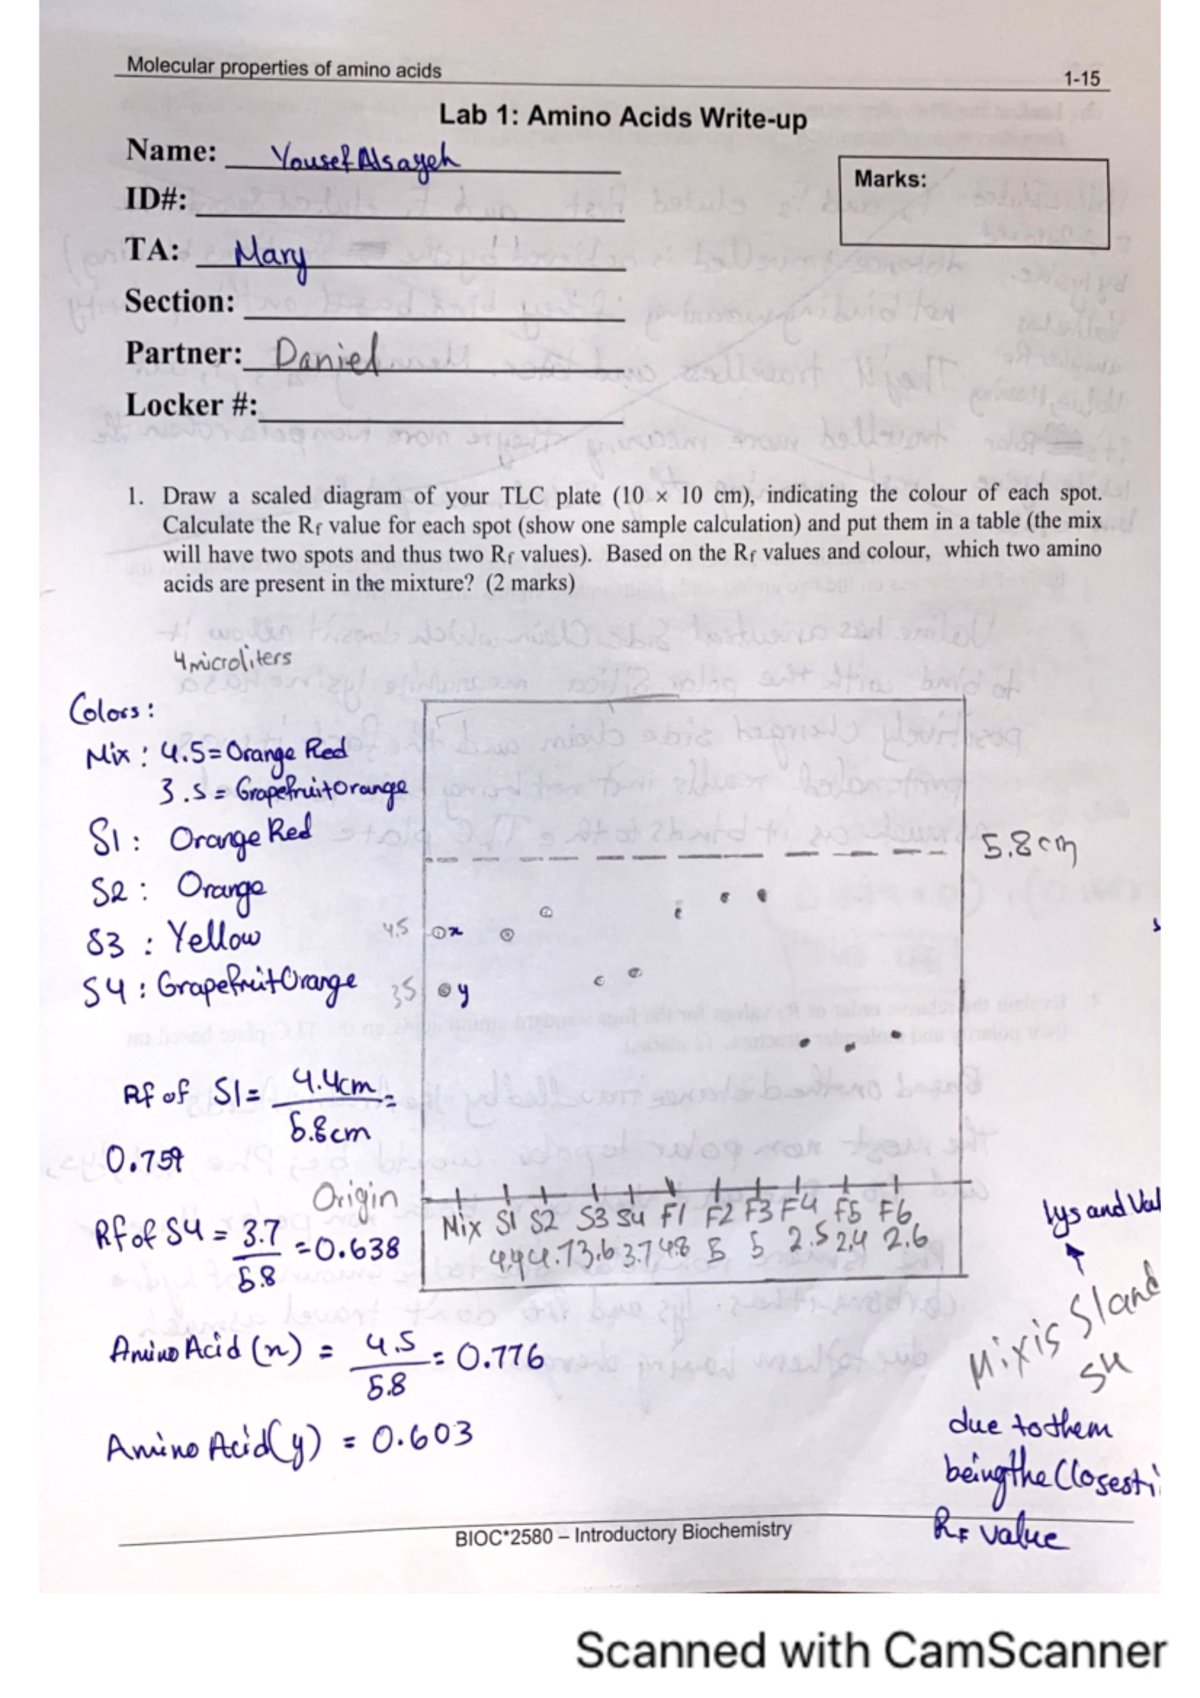 Molecular properties of amino acids 1-15
Lab 1: Amino Acids Write-up
Name: Yousef Alsayeh
Marks:
ID#:
TA: Mary
Section:
Partner: Daniel
Locker #:
1. Draw a scaled diagram of your TLC plate (10 × 10 cm), indicating the colour of each spot.
Calculate the Rf value for each spot (show one sample calculation) and put them in a table (the mix
will have two spots and thus two Rf values). Based on the Rf values and colour, which two amino
acids are present in the mixture? (2 marks)
4 microliters
Colors:
Mix: 4.5 = Orange Red
3.5 = Grapefruit Orange
S1: Orange Red
S2: Orange
S3: Yellow
S4: Grapefruit Orange
5.8cm
4.5 x
3.5 y
Rf of S1 = 4.4cm =
5.8cm
0.759
Rf of S4 = 3.7 = 0.638
5.8
Origin
Mix S1 S2 S3 S4 F1 F2 F3 F4 F5 F6
4.4 4.7 3.6 3.7 4.8 5 5 2.5 2.4 2.6
Amino Acid (x) = 4.5 = 0.776
5.8
Amino Acid (y) = 0.603
lys and Val
Mix is S1 and
S4
due to them
being the Closest
RF value
BIOC*2580 – Introductory Biochemistry
Scanned with CamScanner